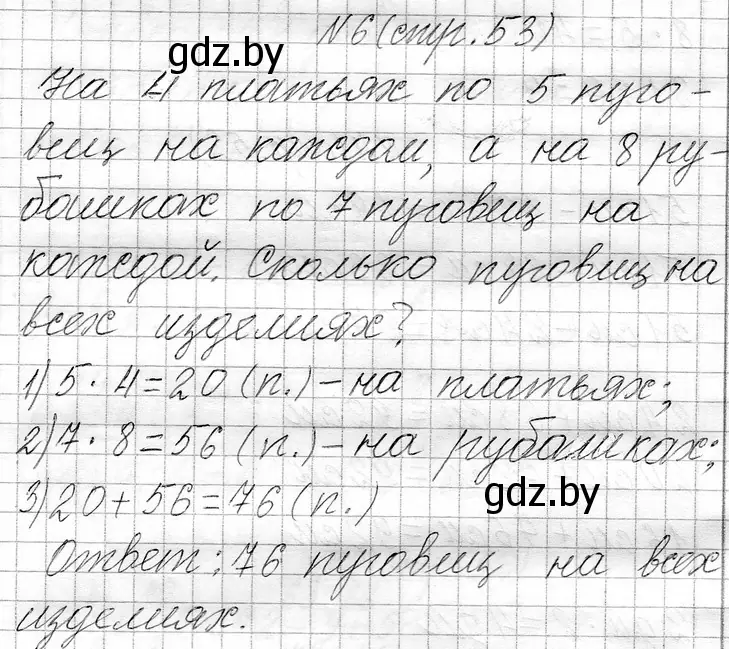 N6 (стр. 53)
gdz.by
На 4 платьях по 5 пуго-
виц на каждом, а на 8 ру-
башках по 7 пуговиц на
каждой. Сколько пуговиц на
всех изделиях?
1) 5 · 4 = 20 (п.) – на платьях;
2) 7 · 8 = 56 (п.) – на рубашках;
3) 20 + 56 = 76 (п.)
gdz.by
Ответ: 76 пуговиц на всех
изделиях.